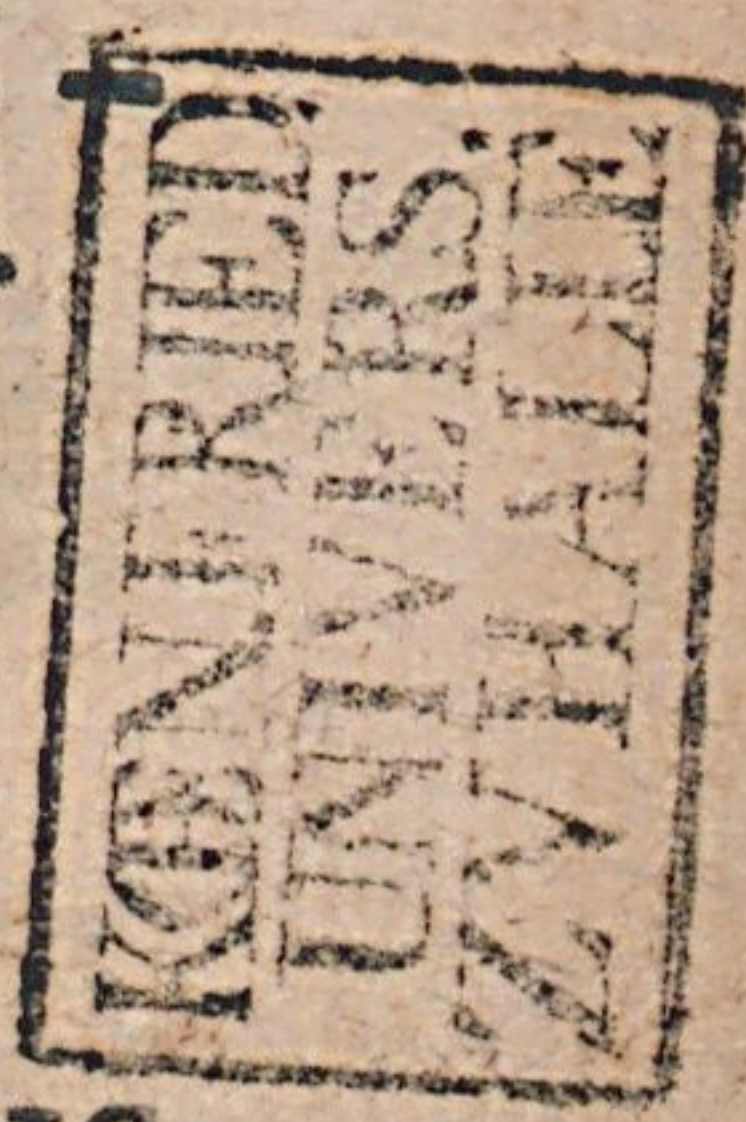 KŒNI. FRIED.
UNIVERS.
ZV HALLE